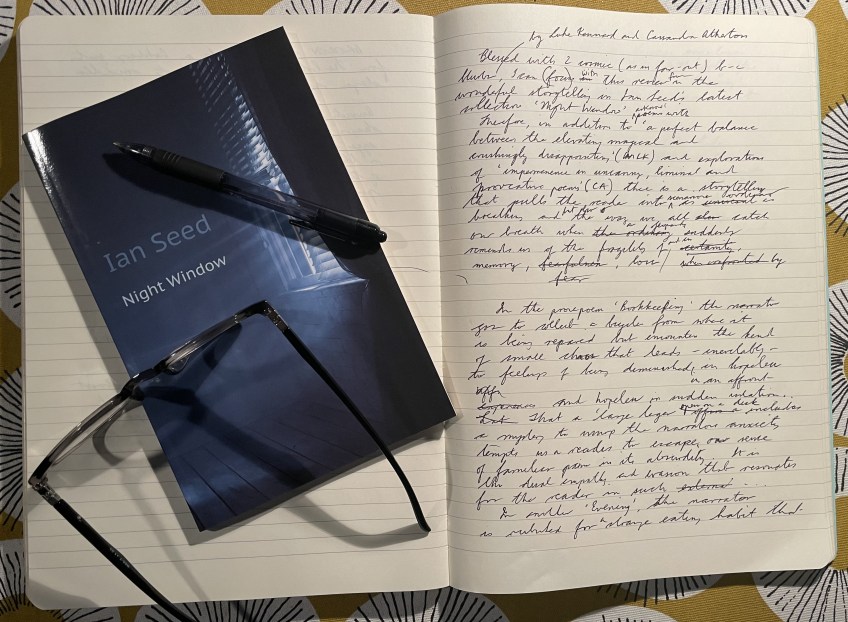 Ian Seed
Night Window
by Luke Kennard and Cassandra Atherton
Blessed with 2 cosmic (as in far-out) b-c
blurbs, I can focus with this review on the
wonderful storytelling in Ian Seed's latest
collection 'Night Window'
Therefore, in addition to 'a perfect balance
between the elevating magical and
crushingly disappointing' (LK) and explorations
of 'impermanence in uncanny, liminal and
provocative poems' (CA) there is a storytelling
that pulls the reader into
breathing and the way we all catch
our breath when suddenly
reminds us of the fragility of certainty,
memory, fearfulness, love when confronted by
fear
In the prose poem 'Bookkeeping' the narrator
goes to collect a bicycle from where it
is being repaired but encounters the kind
of small chaos that leads - inevitably -
to feelings of being diminished, in hopeless
in an affront
and hopeless or sudden isolation..
That a 'large ledger open on a desk' includes
a mystery to usurp the narrator's anxiety
tempts us as readers to escape our sense
of familiar in its absurdity. It is
this dual empathy and evasion that resonates
for the reader in such
In 'Evening', the narrator
is rebuked for a 'strange eating habit that